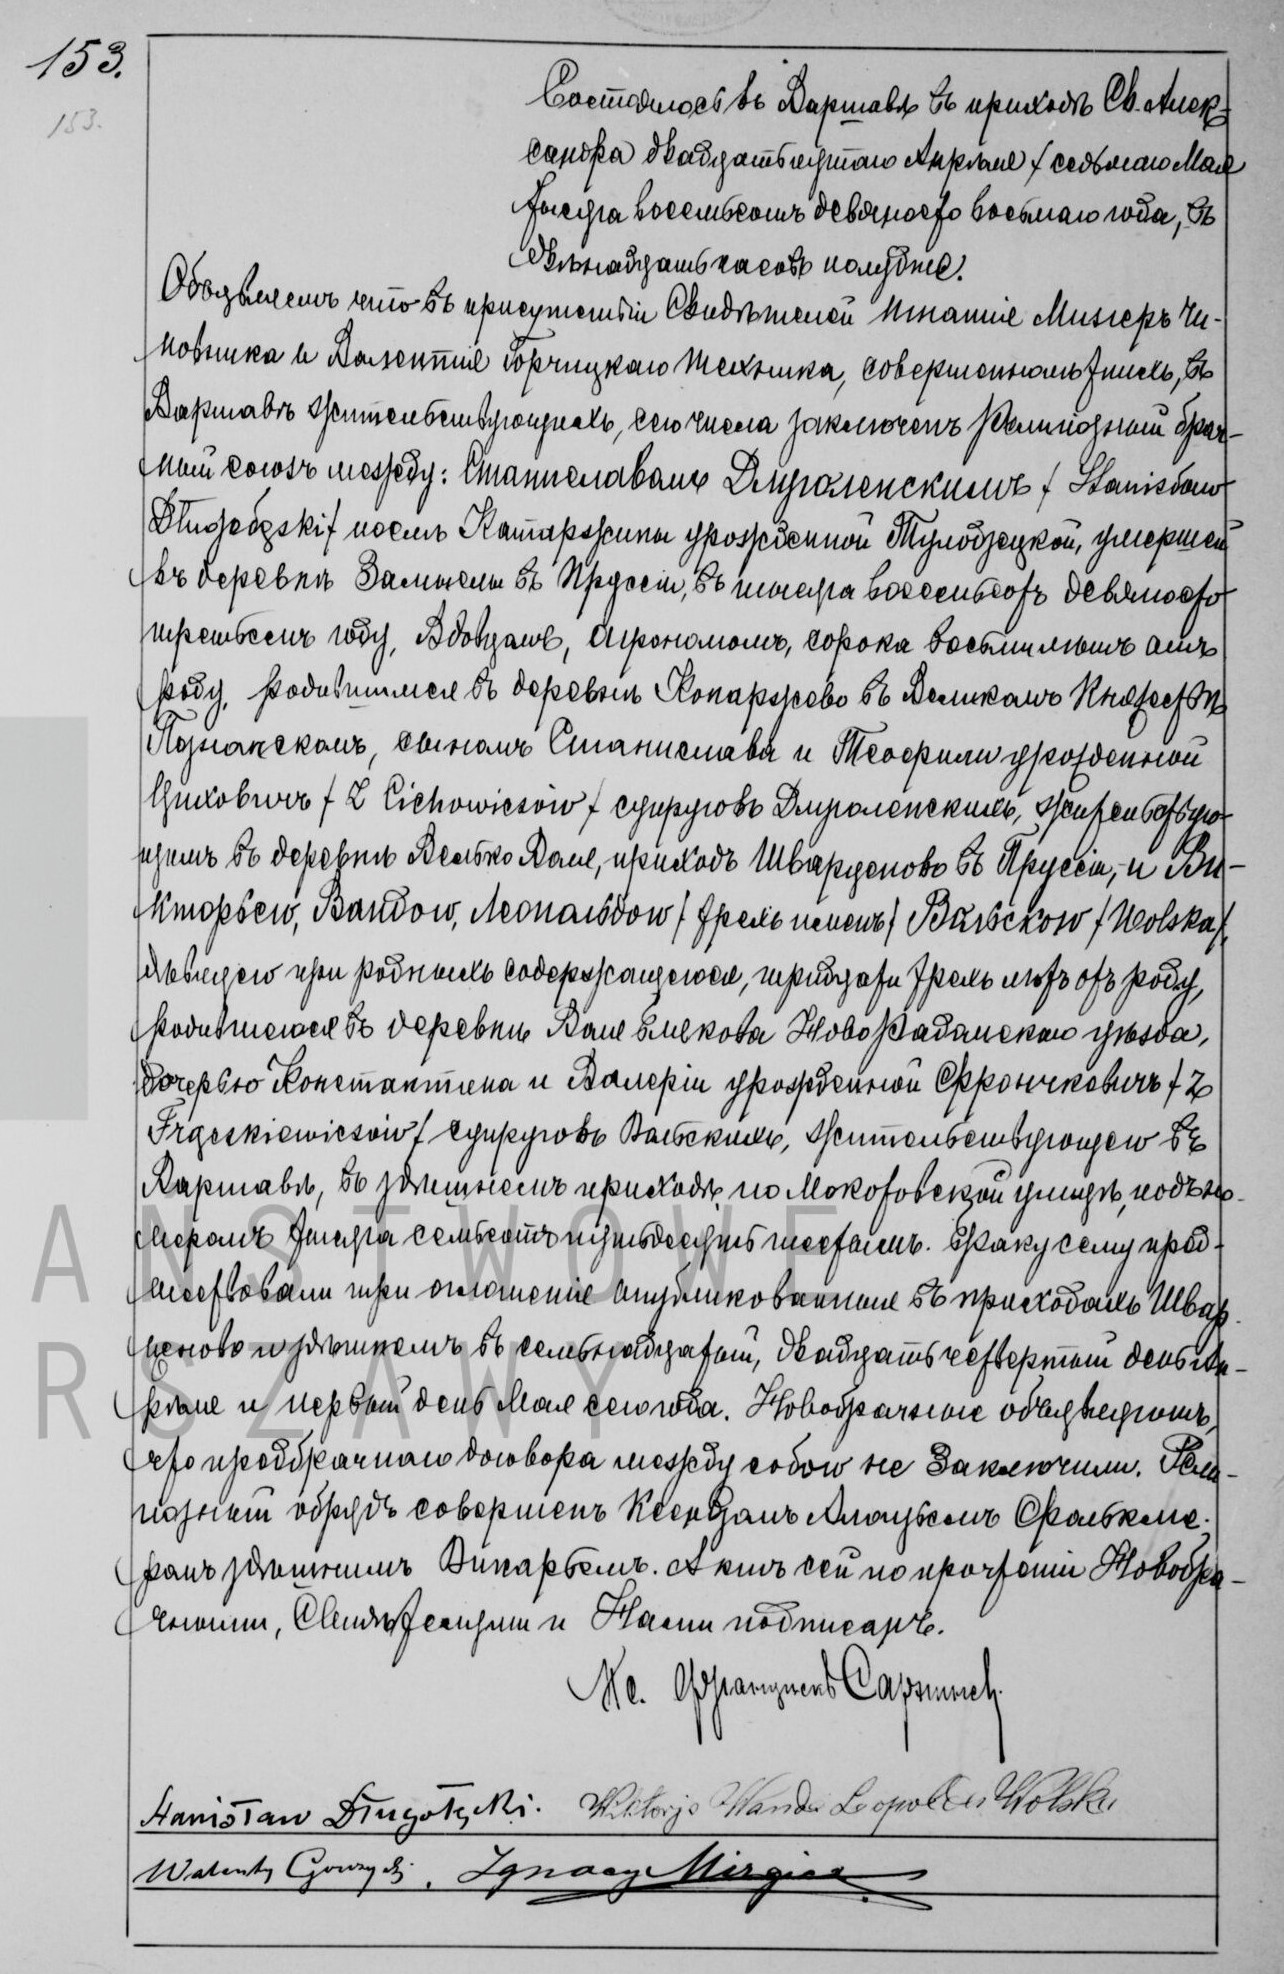 153.
153.
Состоялось въ Варшавѣ въ приходѣ Св. Алек-
сандра двадцать пятаго Апрѣля / седьмаго Мая
тысяча восемьсотъ девяносто восьмаго года, въ
двѣнадцать часовъ полудня.
Объявляемъ что въ присутствіи Свидѣтелей Чи-
новника и Валентія Горчицкаго техника, совершеннолѣтнихъ, въ
Варшавѣ жительствующихъ, сего числа заключенъ Религіозный брач-
ный союзъ между: Станиславомъ / Stanisław
послѣ Катаржины урожденной умершей
въ деревнѣ въ Пруссіи, въ тысяча восемьсотъ девяносто
третьемъ году, Вдовцомъ, Агрономомъ, сорока восьми лѣтъ отъ
роду, родившимся въ деревнѣ Копаржево въ Великомъ Княжествѣ
Познанскомъ, сыномъ Станислава и Теофили урожденной
Циховичъ / Z Cichowiczów / супруговъ жительствую-
щимъ въ деревнѣ приходѣ въ Пруссіи, и Ви-
кторіею, Вандою, Леопольдою / трехъ именъ / Вольскою / Wolska /,
дѣвицею при родныхъ содержащеюся, тридцати трехъ лѣтъ отъ роду,
родившеюся въ деревнѣ Воля Новорадомскаго уѣзда,
дочерью Константина и Валеріи урожденной Фрончкевичъ / Z
Frączkiewiczów / супруговъ Вольскихъ, жительствующею въ
Варшавѣ, въ здѣшнемъ приходѣ по Мокотовской улицѣ, подъ но-
меромъ тысяча семьсотъ пятьдесятъ шестымъ. Браку сему пред-
шествовали три оглашенія опубликованныя въ приходахъ Швар-
ценово и здѣшнемъ въ семьнадцатый, двадцать четвертый день Ап-
рѣля и первый день Мая сего года. Новобрачные объявляютъ,
что предбрачнаго договора между собою не Заключили. Рели-
гіозный обрядъ совершенъ Ксендзомъ Алоизіемъ
здѣшнимъ Викаріемъ. Актъ сей по прочтеніи Новобра-
чными, Свидѣтелями и Нами подписанъ.
Кс. Францискъ
Stanisław
Wiktorja Wanda Leopolda Wolska
Walenty
Ignacy
ANSTWOWE
RSZAWY